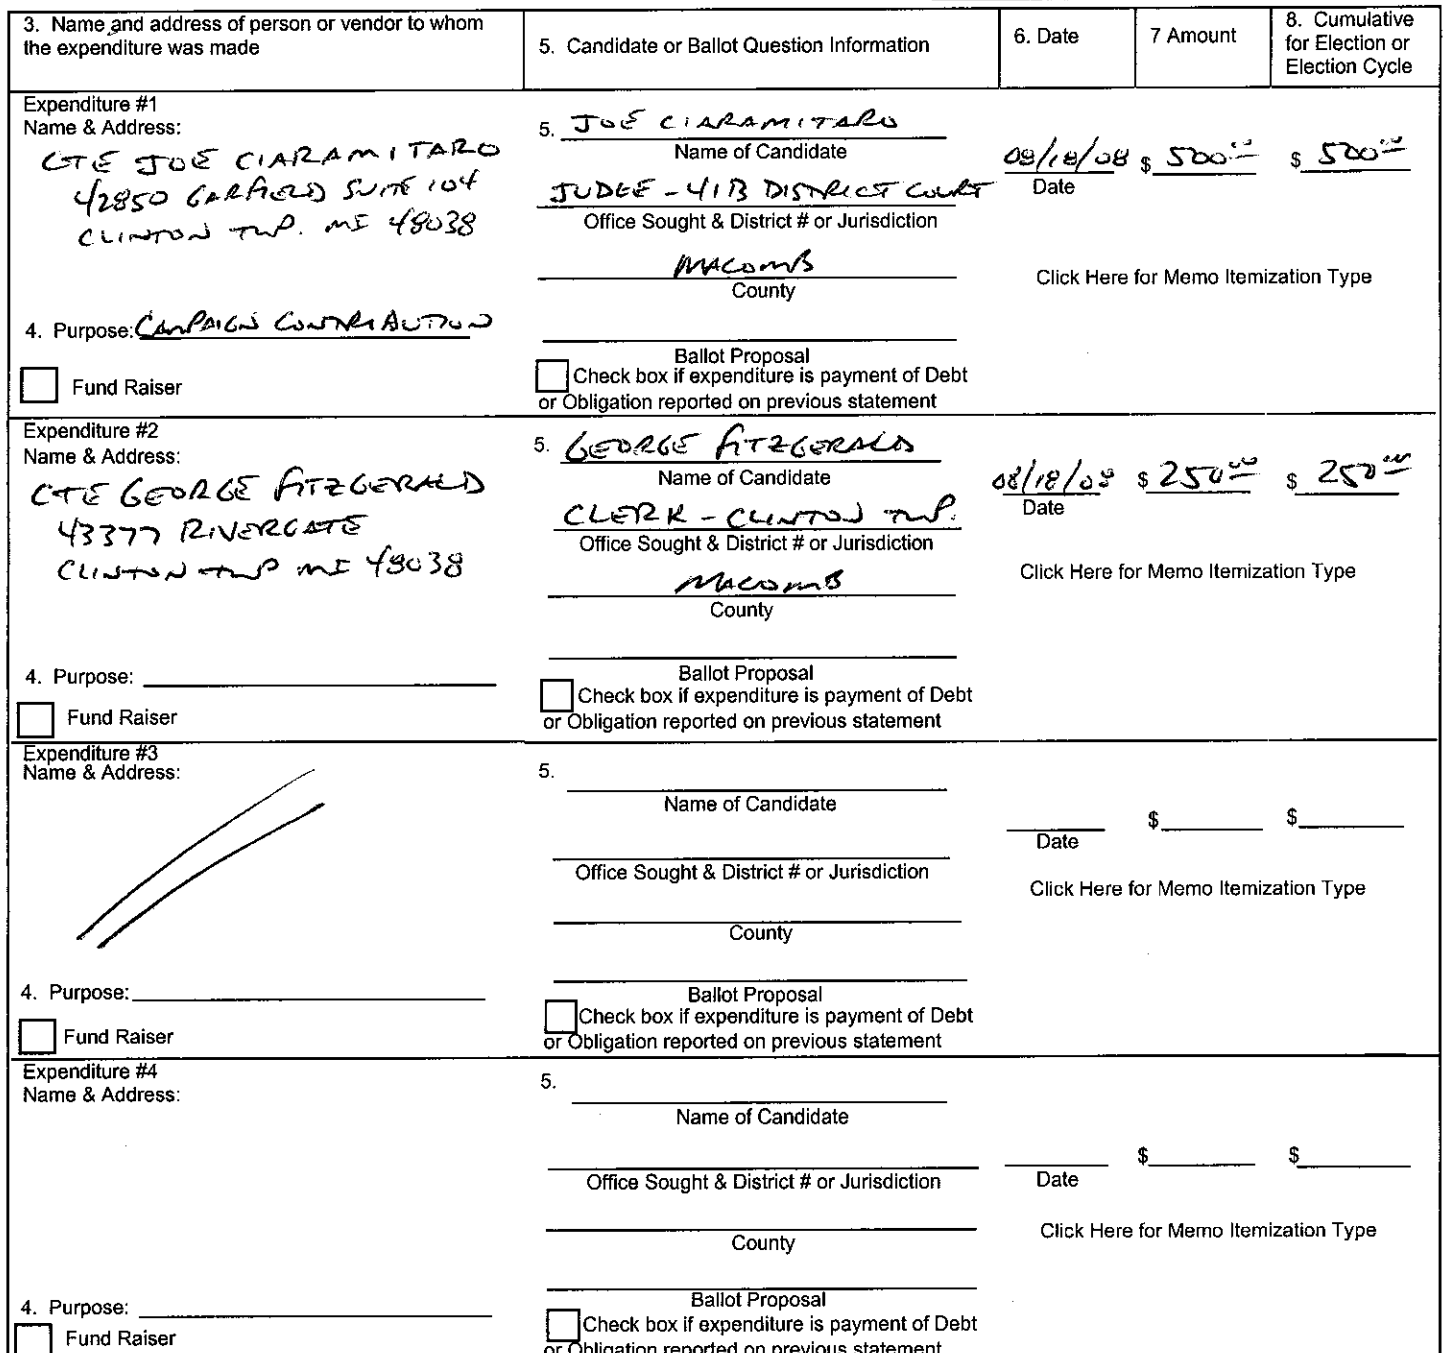 3. Name and address of person or vendor to whom
the expenditure was made
5. Candidate or Ballot Question Information
6. Date
7 Amount
8. Cumulative
for Election or
Election Cycle
Expenditure #1
Name & Address:
CTE JOE CIARAMITARO
42850 GARFIELD SUITE 104
CLINTON TWP. MI 48038
4. Purpose: CAMPAIGN CONTRIBUTION
Fund Raiser
5. JOE CIARAMITARO
Name of Candidate
JUDGE - 41B DISTRICT COURT
Office Sought & District # or Jurisdiction
MACOMB
County
Ballot Proposal
Check box if expenditure is payment of Debt
or Obligation reported on previous statement
08/18/08 $ 500.00 $ 500.00
Date
Click Here for Memo Itemization Type
Expenditure #2
Name & Address:
CTE GEORGE FITZGERALD
43377 RIVERGATE
CLINTON TWP MI 48038
4. Purpose:
Fund Raiser
5. GEORGE FITZGERALD
Name of Candidate
CLERK - CLINTON TWP.
Office Sought & District # or Jurisdiction
MACOMB
County
Ballot Proposal
Check box if expenditure is payment of Debt
or Obligation reported on previous statement
08/18/08 $ 250.00 $ 250.00
Date
Click Here for Memo Itemization Type
Expenditure #3
Name & Address:
4. Purpose:
Fund Raiser
5.
Name of Candidate
Office Sought & District # or Jurisdiction
County
Ballot Proposal
Check box if expenditure is payment of Debt
or Obligation reported on previous statement
$ $
Date
Click Here for Memo Itemization Type
Expenditure #4
Name & Address:
4. Purpose:
Fund Raiser
5.
Name of Candidate
Office Sought & District # or Jurisdiction
County
Ballot Proposal
Check box if expenditure is payment of Debt
or Obligation reported on previous statement
$ $
Date
Click Here for Memo Itemization Type